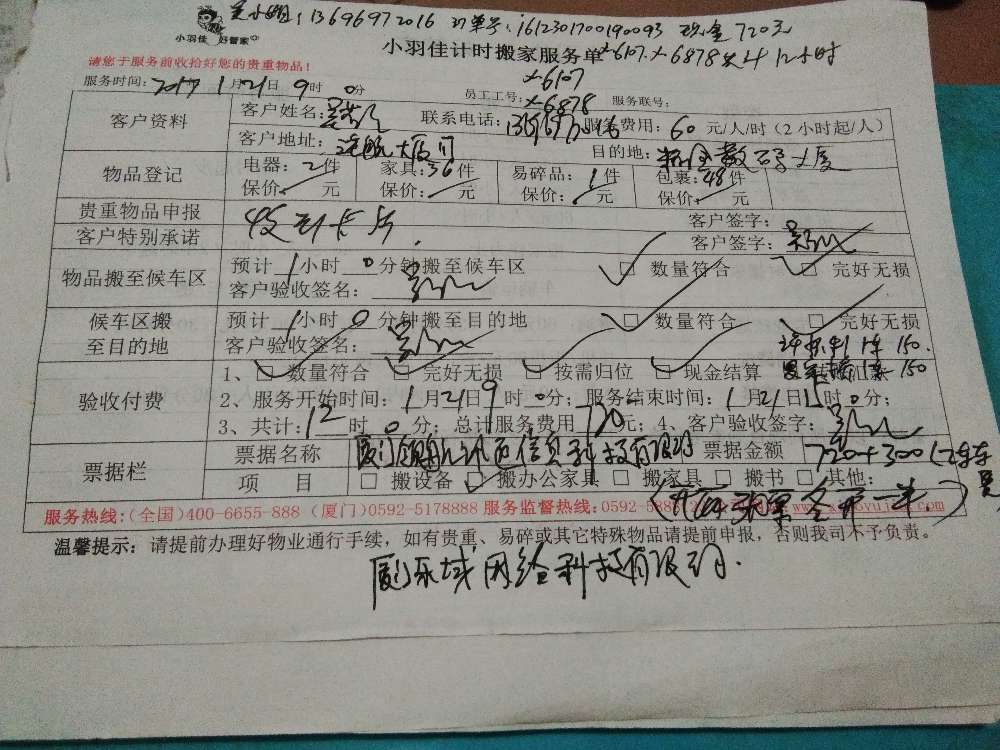 吴小姐:13696972016 订单号:1612301700190093 现金720元
小羽佳 好管家
小羽佳计时搬家服务单 x-6107.x-6878共4 12小时
请您于服务前收拾好您的贵重物品!
x-6107
服务时间: 2017 1月21日 9时 0分 员工工号: x-6878 服务联号:
客户资料 客户姓名: 联系电话: 服务费用: 60 元/人/时(2小时起/人)
客户地址: 目的地:
物品登记 电器: 2件 家具: 36件 易碎品: 1件 包裹: 48件
保价: 元 保价: 元 保价: 元 保价: 元
贵重物品申报 客户签字:
客户特别承诺 客户签字:
物品搬至候车区 预计 1小时 0分钟搬至候车区 数量符合 完好无损
客户验收签名:
候车区搬至目的地 预计 1小时 0分钟搬至目的地 数量符合 完好无损
客户验收签名: 150.
验收付费 1、 数量符合 完好无损 按需归位 现金结算 150
2、服务开始时间: 1月21日9时 0分; 服务结束时间: 1月21日 时0分;
3、共计: 12时 0分; 总计服务费用 720元; 4、客户验收签字:
票据栏 票据名称 厦门领航讯西信息科技有限公司 票据金额 720+300
项目 搬设备 搬办公家具 搬家具 搬书 其他:
服务热线:(全国)400-6655-888 (厦门)0592-5178888 服务监督热线:0592-588
温馨提示: 请提前办理好物业通行手续,如有贵重、易碎或其它特殊物品请提前申报,否则我司不予负责。
厦门乐域网络科技有限公司.